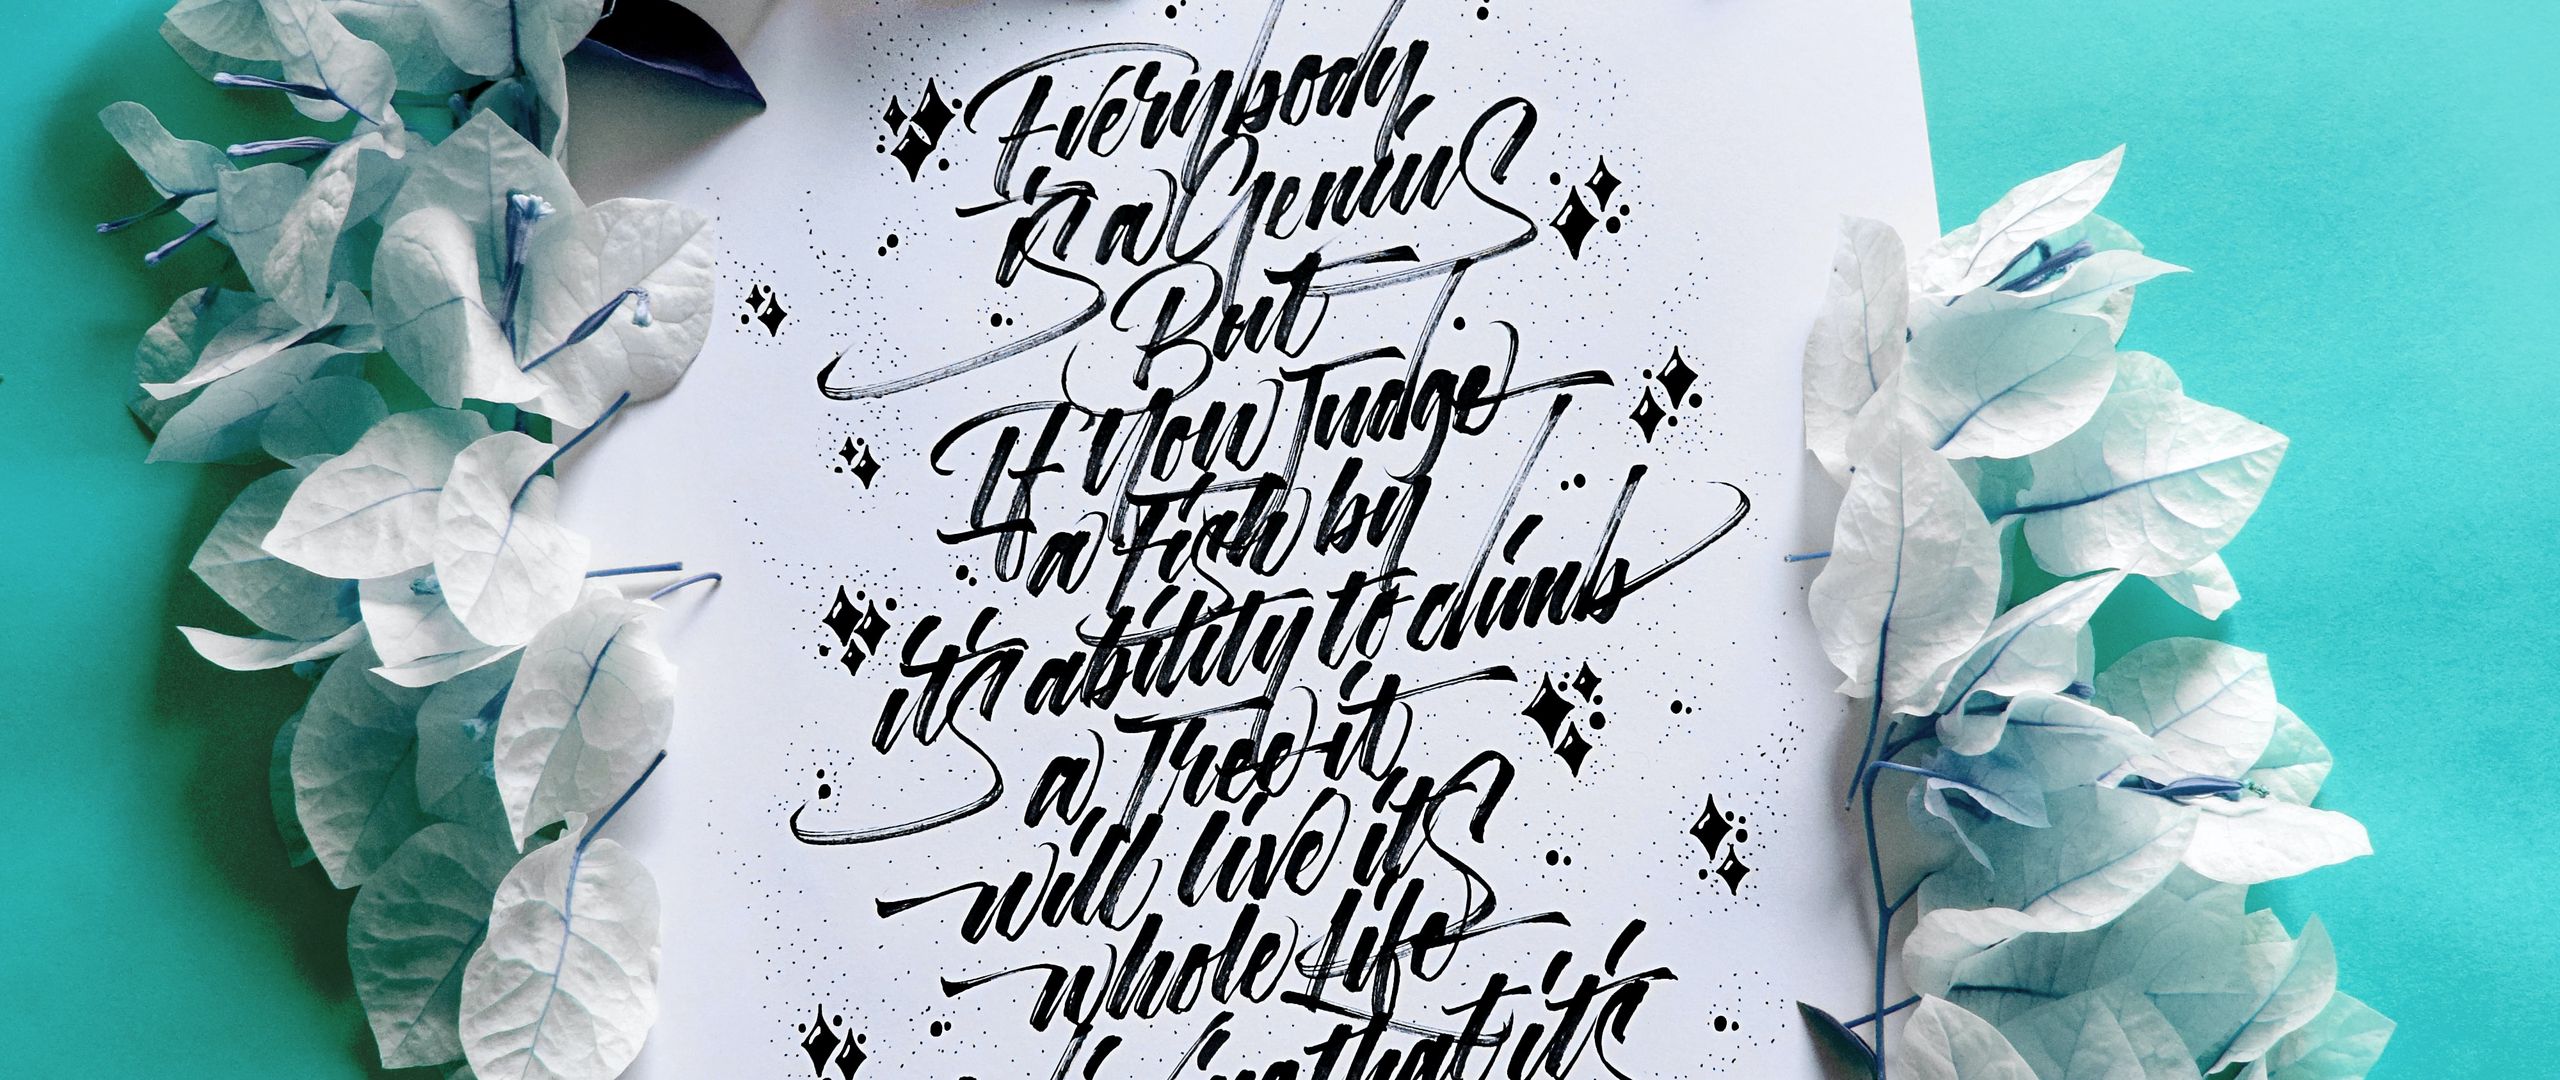 Everybody
is a Genius
But
If You Judge
a Fish by
it's ability to climb
a Tree it
will live it's
whole Life
that it's